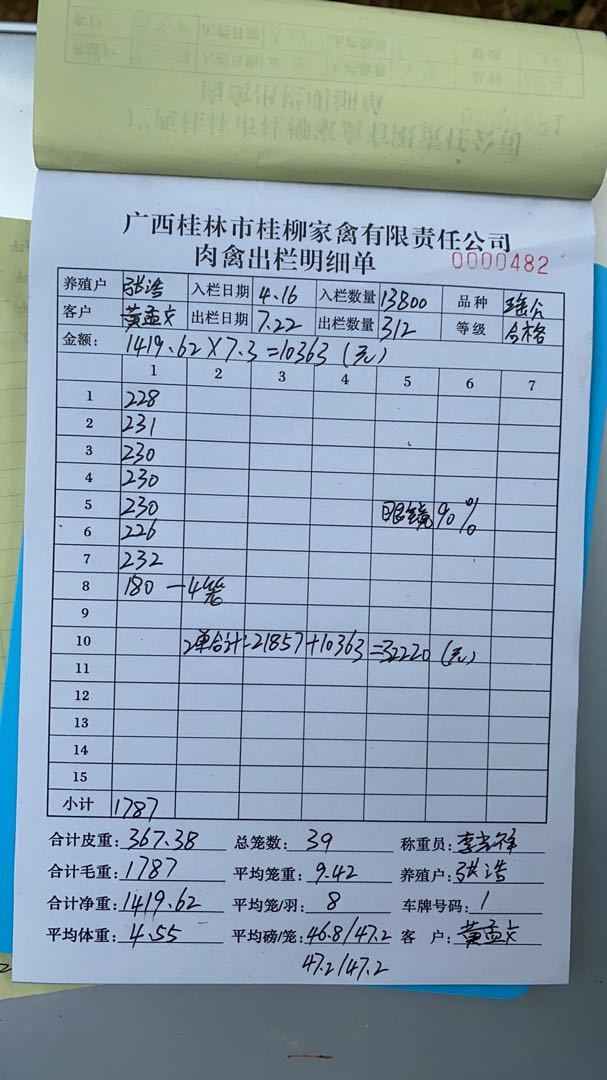 广西桂林市桂柳家禽有限责任公司
肉禽出栏明细单 0000482
养殖户 张浩 入栏日期 4.16 入栏数量 13800 品种 瑶公
客户 黄孟文 出栏日期 7.22 出栏数量 312 等级 合格
金额: 1419.62×7.3=10363(元)
1 2 3 4 5 6 7
1 228
2 231
3 230
4 230
5 230 眼镜90%
6 226
7 232
8 180 —4笼
9
10 2单合计:21857+10363=32220(元)
11
12
13
14
15
小计 1787
合计皮重: 367.38 总笼数: 39 称重员:
合计毛重: 1787 平均笼重: 9.42 养殖户: 张浩
合计净重: 1419.62 平均笼/羽: 8 车牌号码: 1
平均体重: 4.55 平均磅/笼: 46.8/47.2 客户: 黄孟文
47.2/47.2